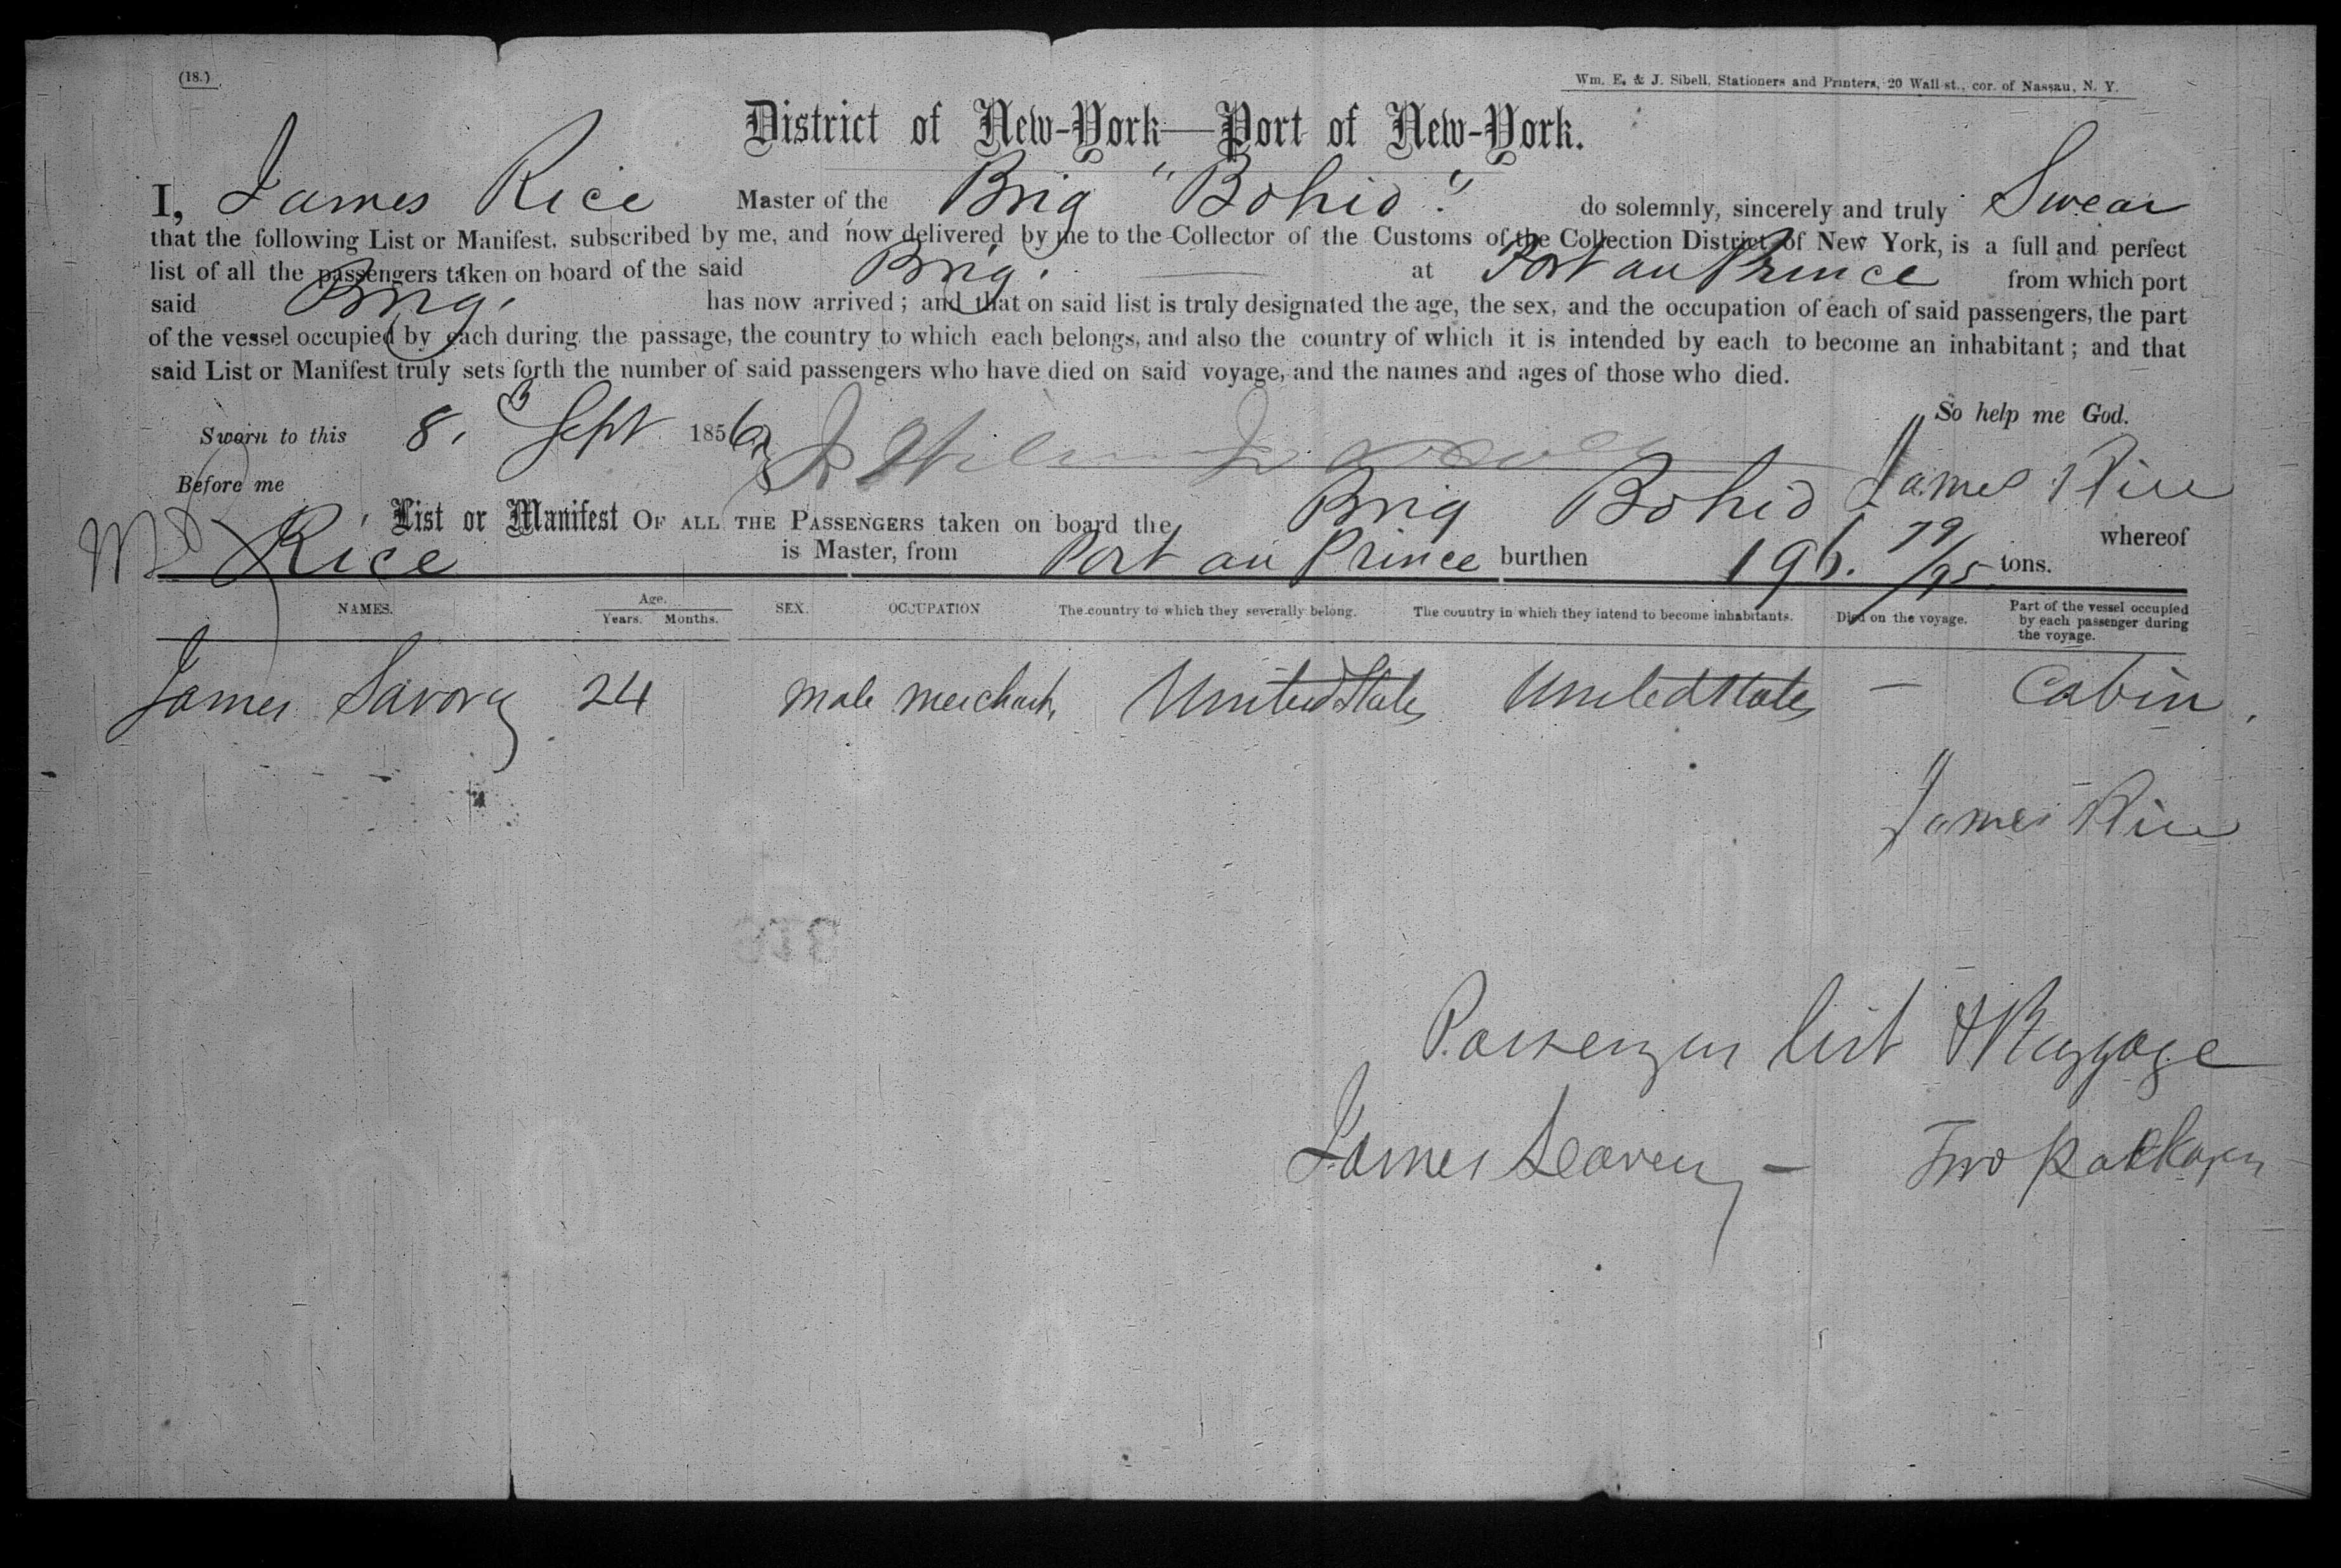 (18.)
Wm. E. & J. Sibell, Stationers and Printers, 20 Wall-st., cor. of Nassau, N. Y.
District of New-York—Port of New-York.
I, James Rice Master of the Brig "Bohio". do solemnly, sincerely and truly Swear
that the following List or Manifest, subscribed by me, and now delivered by me to the Collector of the Customs of the Collection District of New York, is a full and perfect
list of all the passengers taken on board of the said Brig. at Port au Prince from which port
said Brig. has now arrived; and that on said list is truly designated the age, the sex, and the occupation of each of said passengers, the part
of the vessel occupied by each during the passage, the country to which each belongs, and also the country of which it is intended by each to become an inhabitant; and that
said List or Manifest truly sets forth the number of said passengers who have died on said voyage, and the names and ages of those who died.
So help me God.
Sworn to this 8. Sept 1856
James Rice
Before me
List or Manifest OF ALL THE PASSENGERS taken on board the Brig Bohio whereof
Rice is Master, from Port au Prince burthen 196. 79/95 tons.
NAMES. Age. Years. Months. SEX. OCCUPATION The country to which they severally belong. The country in which they intend to become inhabitants. Died on the voyage. Part of the vessel occupied by each passenger during the voyage.
James Savory 24 male merchant United States United States — Cabin.
James Rice
Passenger list & Baggage
James Seavery — Two packages